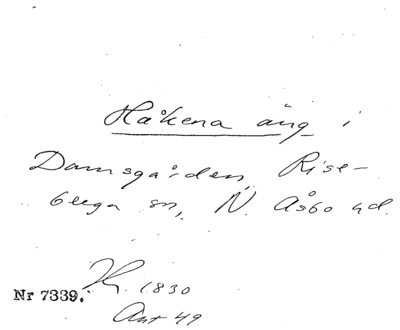 Håkena äng i
Damsgården, Rise-
berga sn, N. Åsbo hd.
1830
Nr 7339.
Akt 49